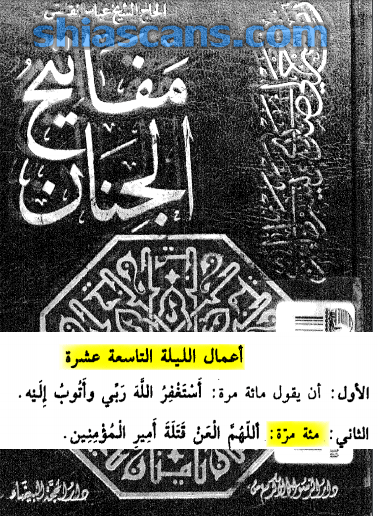 الحاج الشيخ عباس القمي
shiascans.com
مفاتيح
الجنان
أعمال الليلة التاسعة عشرة
الأول: أن يقول مائة مرة: أَسْتَغْفِرُ اللَّهَ رَبِّي وَأَتُوبُ إِلَيْهِ.
الثاني: مئة مرّة: أَللّٰهُمَّ الْعَنْ قَتَلَةَ أَمِيرِ الْمُؤْمِنِين.
دار الرسول الأكرم ص
دار المحجة البيضاء